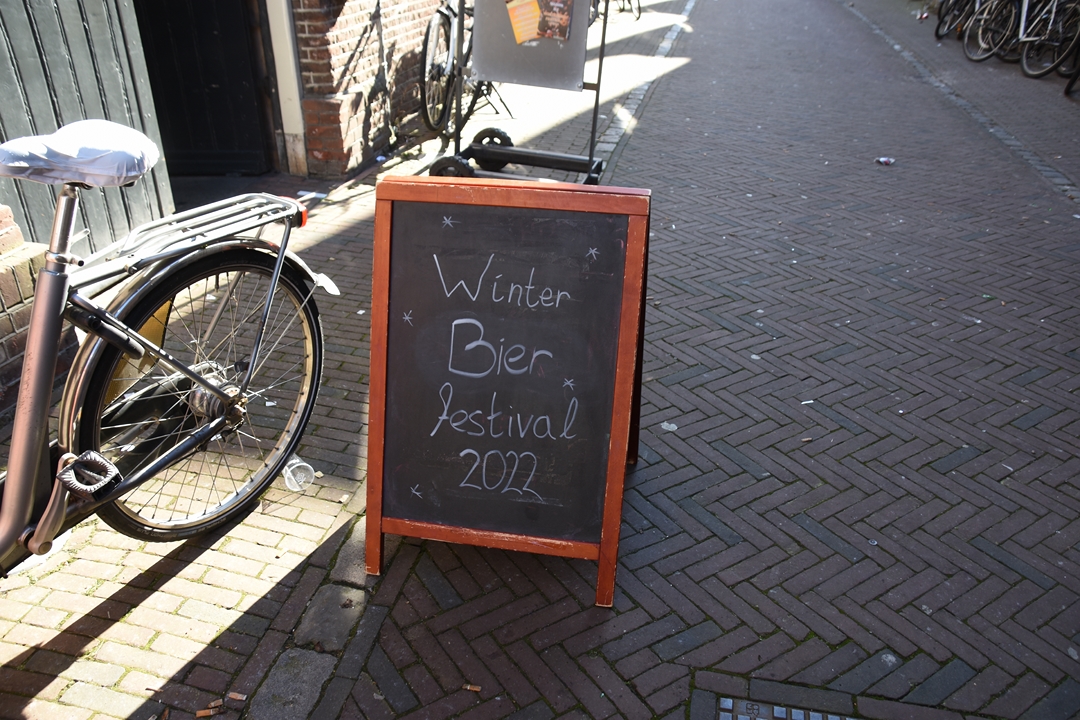 Winter
Bier
festival
2022